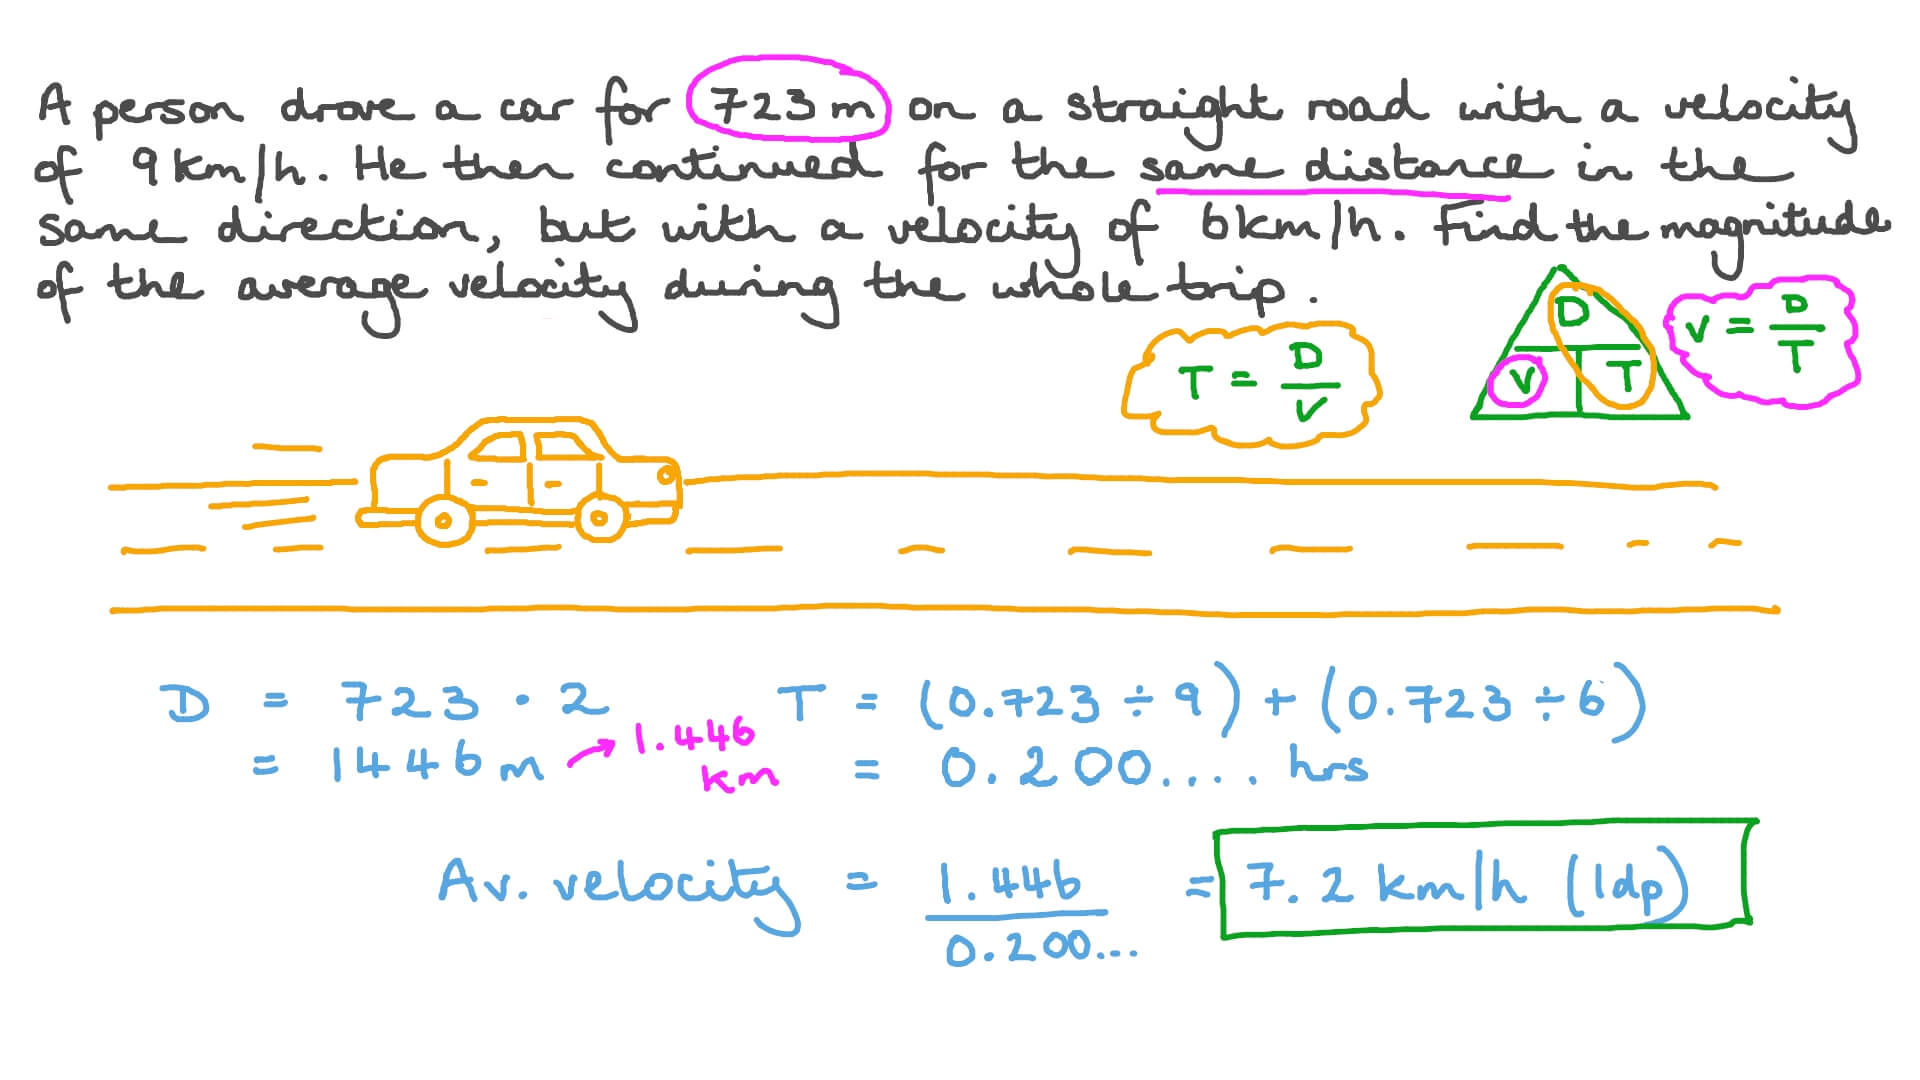 A person drove a car for 723 m on a straight road with a velocity
of 9 km/h. He then continued for the same distance in the
same direction, but with a velocity of 6 km/h. Find the magnitude
of the average velocity during the whole trip.
T = D/V
D
V T
V = D/T
D = 723 · 2
= 1446 m → 1.446 km
T = (0.723 ÷ 9) + (0.723 ÷ 6)
= 0.200.... hrs
Av. velocity = 1.446/0.200... = 7.2 km/h (1dp)